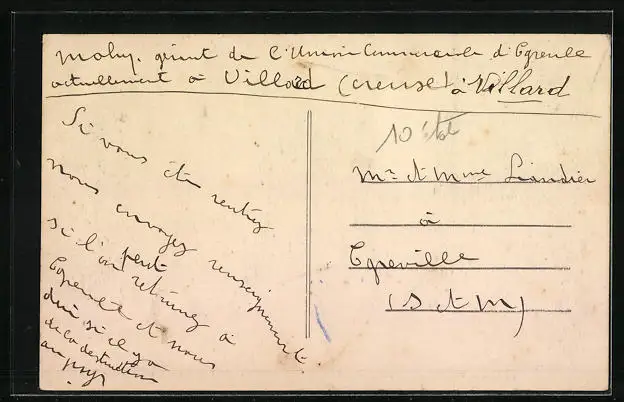 Mohy. gérant de l'Union Commerciale d'Egreville
actuellement à Villard (Creuse) à Villard
10 
Si vous êtes rentrez
nous envoyez renseignements.
si l'on peut
retournez à
Egreville et nous
dire si il y a
de la destruction
au pays
Mr et Mme Liandier
à
Egreville
(S et M)